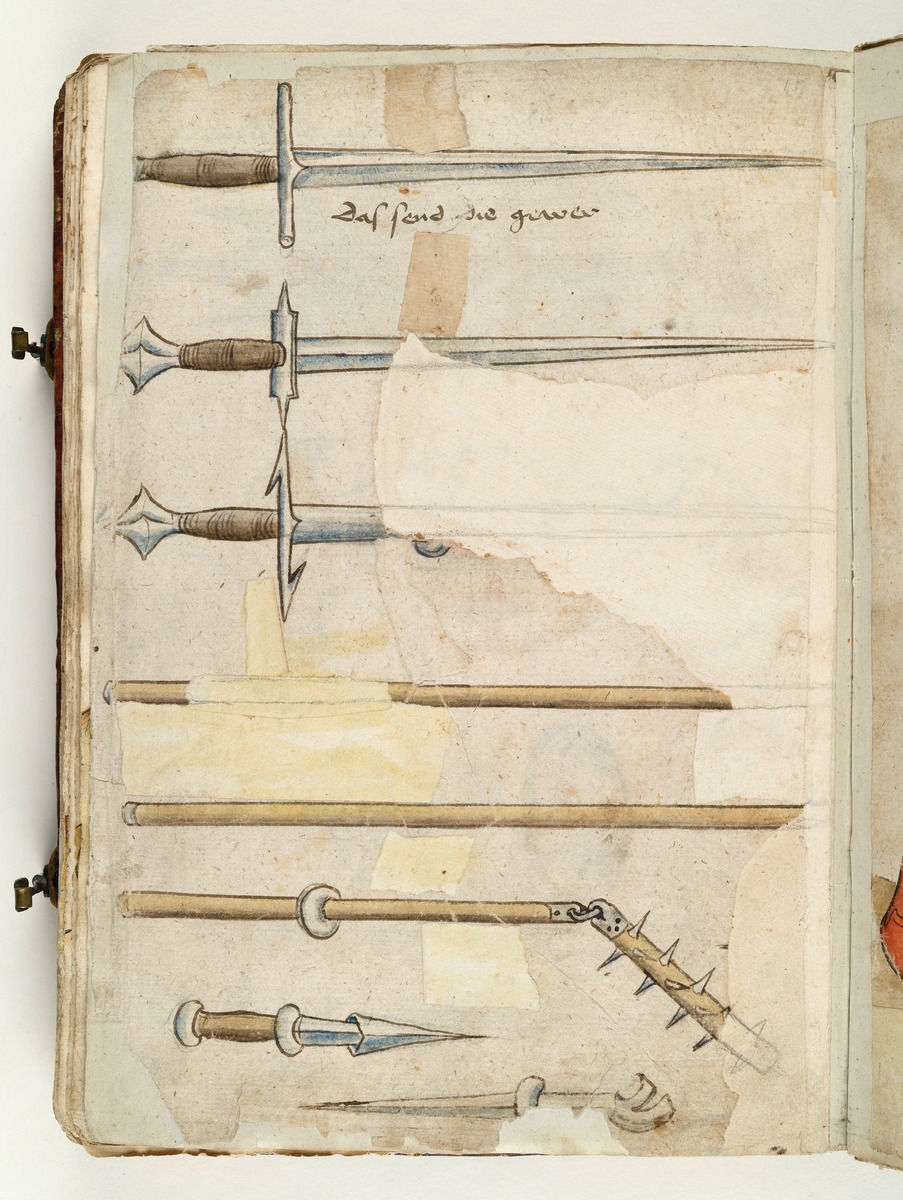 das send die gewer
15